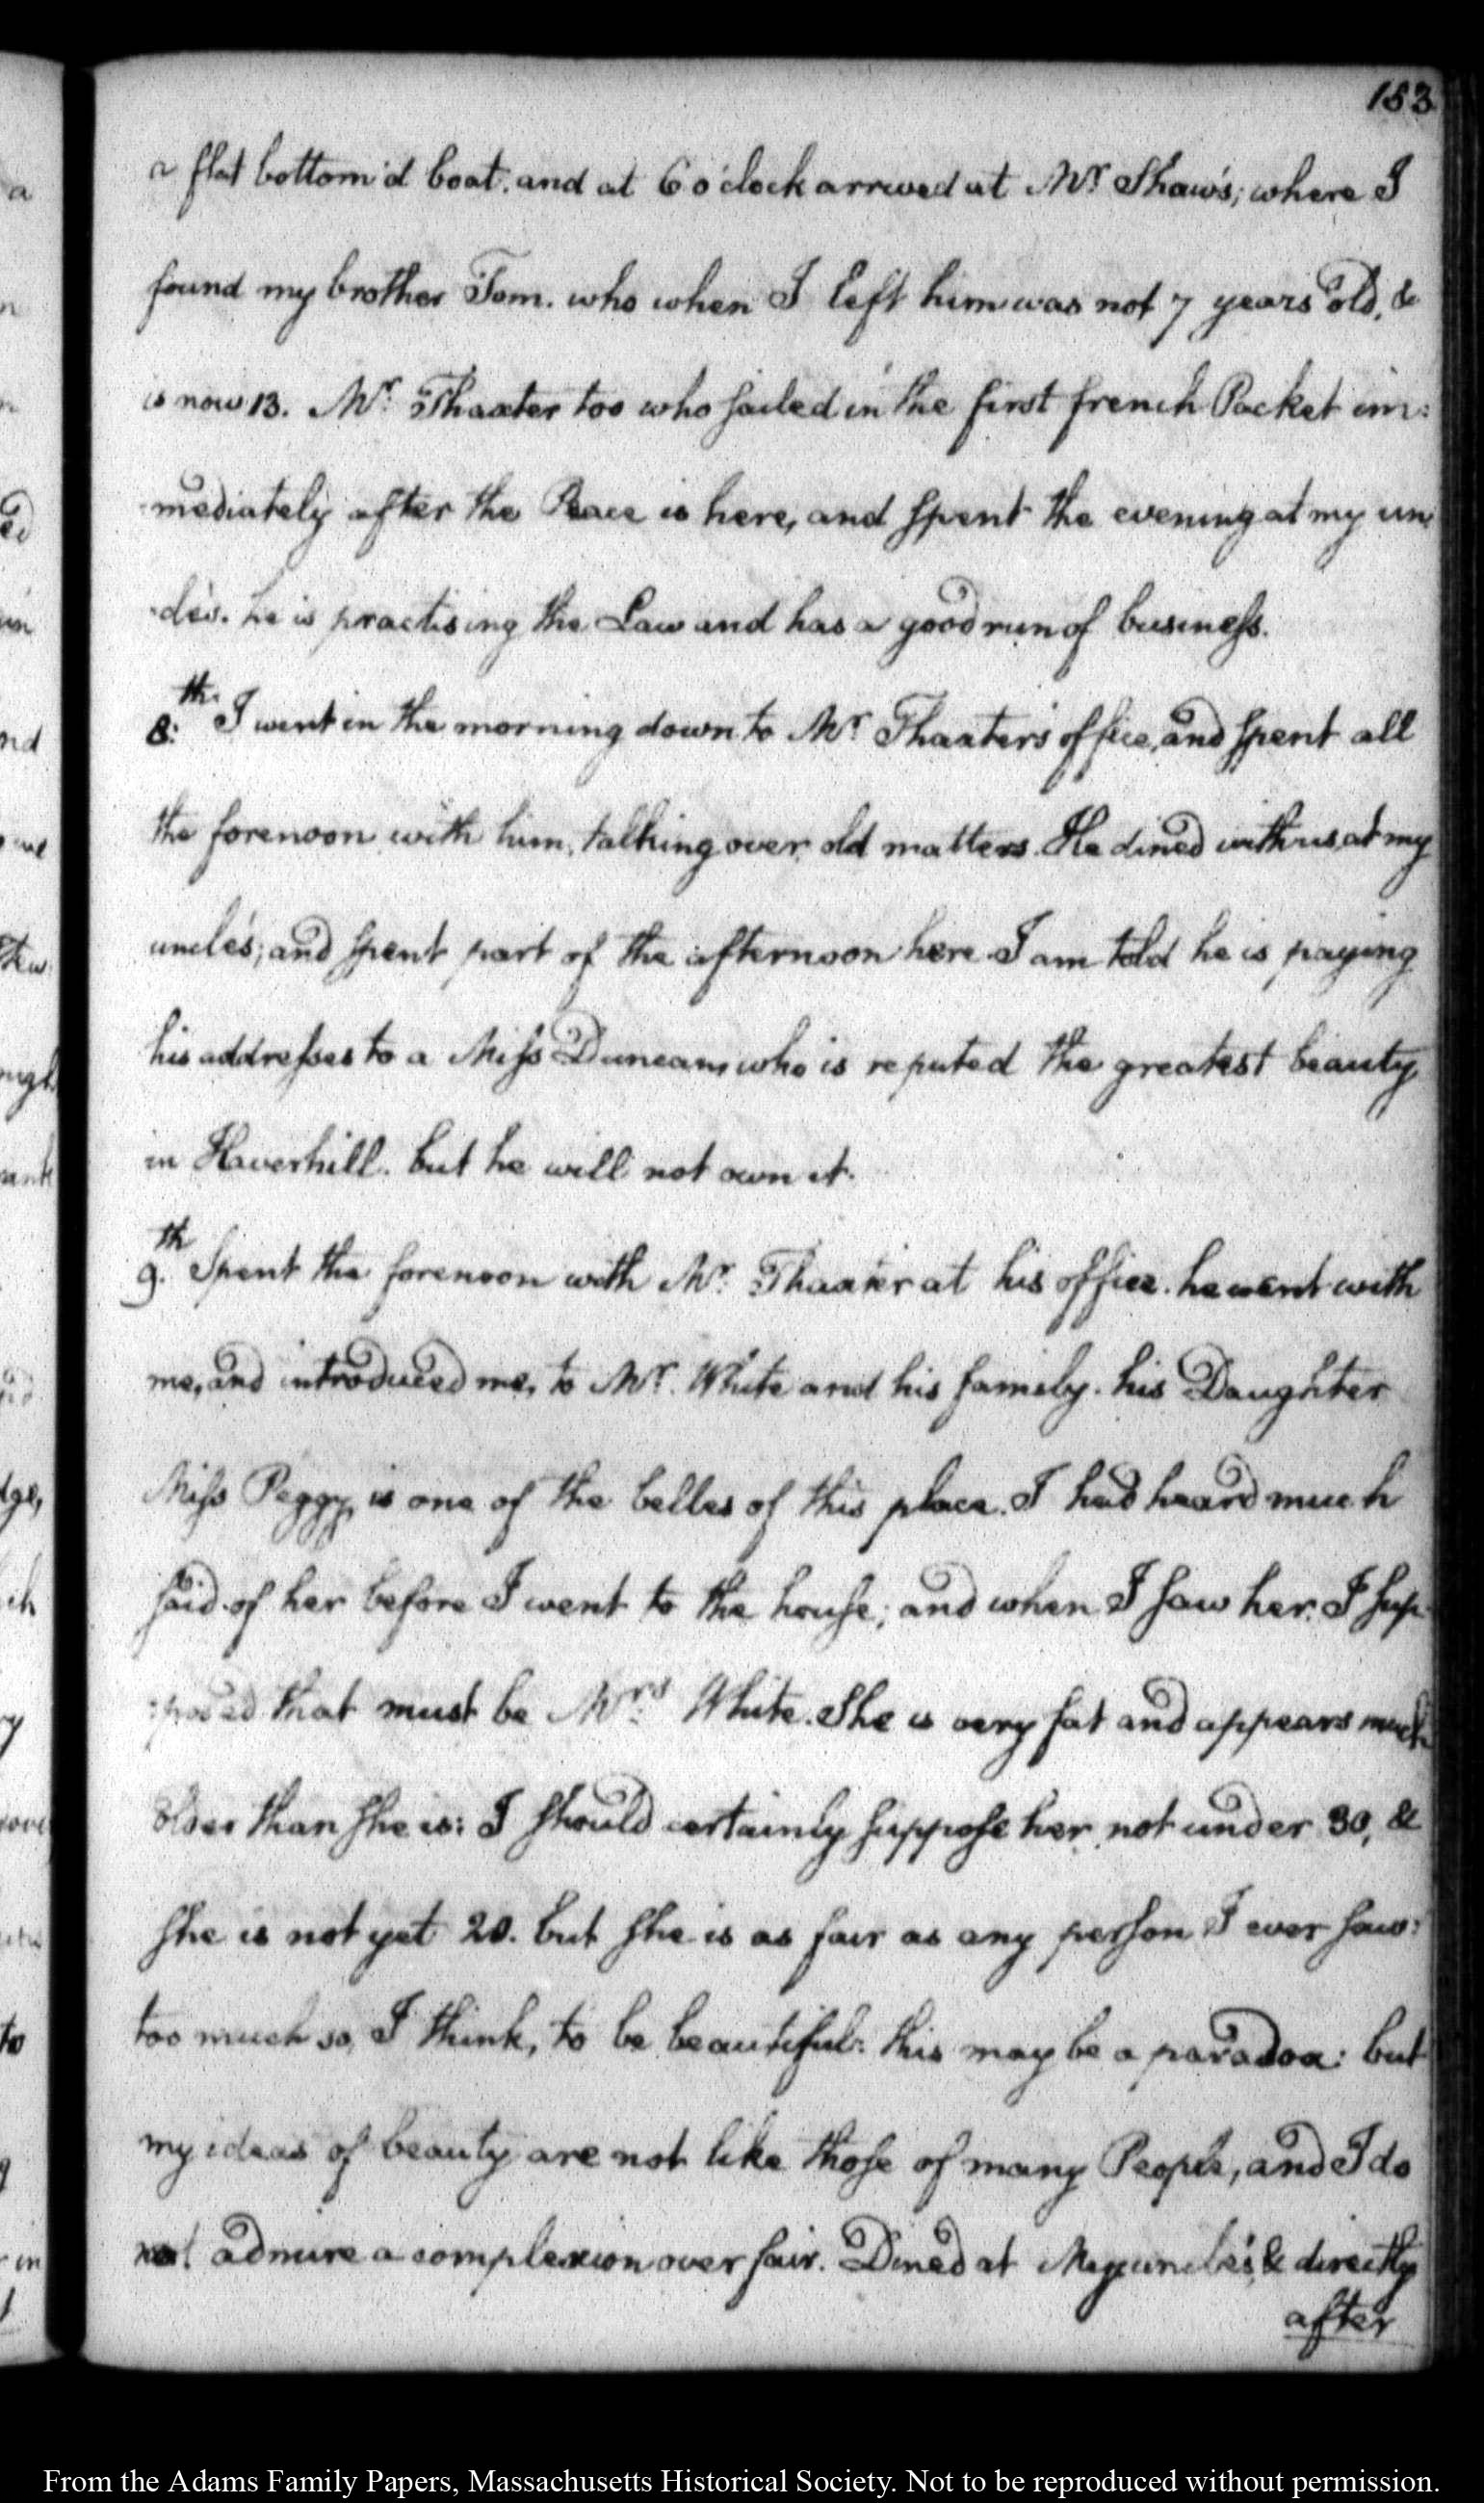 153
a flat bottom'd boat. and at 6 o'clock arrived at Mr. Shaw's; where I
found my brother Tom. who when I left him was not 7 years old, &
is now 13. Mr. Thaxter too who sailed in the first french Packet im:
:mediately after the Peace is here, and spent the evening at my un:
:cle's. he is practising the Law and has a good run of business.
8:th I went in the morning down to Mr. Thaxter's office, and spent all
the forenoon with him, talking over old matters. He dined with us, at my
uncle's; and spent part of the afternoon here. I am told he is paying
his addresses to a Miss Duncan, who is reputed the greatest beauty
in Haverhill. but he will not own it.
9.th Spent the forenoon with Mr. Thaxter at his office. he went with
me, and introduced me, to Mr. White and his family. his Daughter
Miss Peggy, is one of the belles of this place. I had heard much
said of her before I went to the house; and when I saw her. I sup
:posed that must be Mrs. White. She is very fat and appears much
older than she is: I should certainly suppose her not under 30, &
she is not yet 20. but she is as fair as any person I ever saw:
too much so, I think, to be beautiful: this may be a paradox: but
my ideas of beauty are not like those of many People, and I do
not admire a complexion over fair. Dined at My uncle's, & directly
after
From the Adams Family Papers, Massachusetts Historical Society. Not to be reproduced without permission.